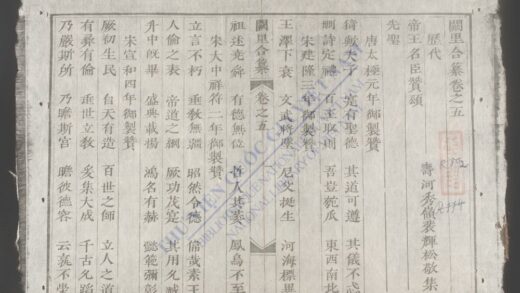 闕里合纂卷之五
歷代
帝王名臣贊頌
壽河秀嶺裴輝松敬集
先聖
唐太極元年御製贊
猗歟夫子 寔有聖德 其道可遵 其儀不忒
刪詩定禮 百王取則 吾豈匏瓜 東西南北
宋建隆三年御製贊
王澤下衰 文武將墜 尼父挺生 河海標異
闕里合纂 卷之五
祖述堯舜 有德無位 哲人其萎 鳳鳥不至
宋大中祥符二年御製贊
立言不朽 垂敎無疆 昭然令德 偉哉素王
人倫之表 帝道之綱 厥功茂寔 其用允臧
升中旣畢 盛典載揚 鴻名有赫 懿範彌彰
宋宣和四年御製贊
厥初生民 自天有造 百世之師 立人之道
有彝有倫 垂世立敎 爰集大成 千古允蹈
乃嚴斯所 乃瞻斯宮 瞻彼德容 云孰不崇
THƯ VIỆN QUỐC GIA VIỆT NAM
NATIONAL LIBRARY OF VIETNAM